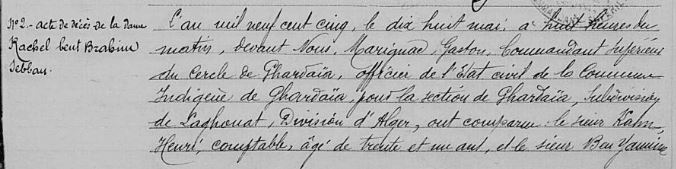 N° 2 - acte de décès de la dame
Rachel bent Brahim
Sebban.
L'an mil neuf cent cinq, le dix huit mai, à huit heures du
matin, devant Nous, Marignac Gaston, Commandant Supérieur
du Cercle de Ghardaïa, officier de l'Etat civil de la Commune
Indigène de Ghardaïa pour la section de Ghardaïa, Subdivision
de Laghouat, Division d'Alger, ont comparu le sieur Kahn
Henri, comptable, âgé de trente et un ans, et le sieur Ben Yamine